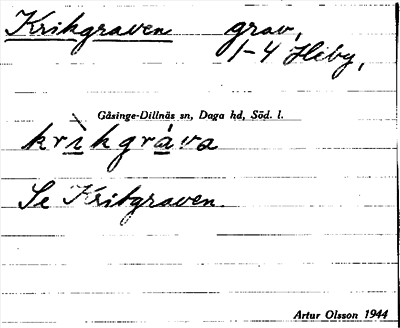 Krikgraven grav,
1-4 Heby,
Gåsinge-Dillnäs sn, Daga hd, Söd. l.
krìkgráva
Se Kritgraven.
Artur Olsson 1944